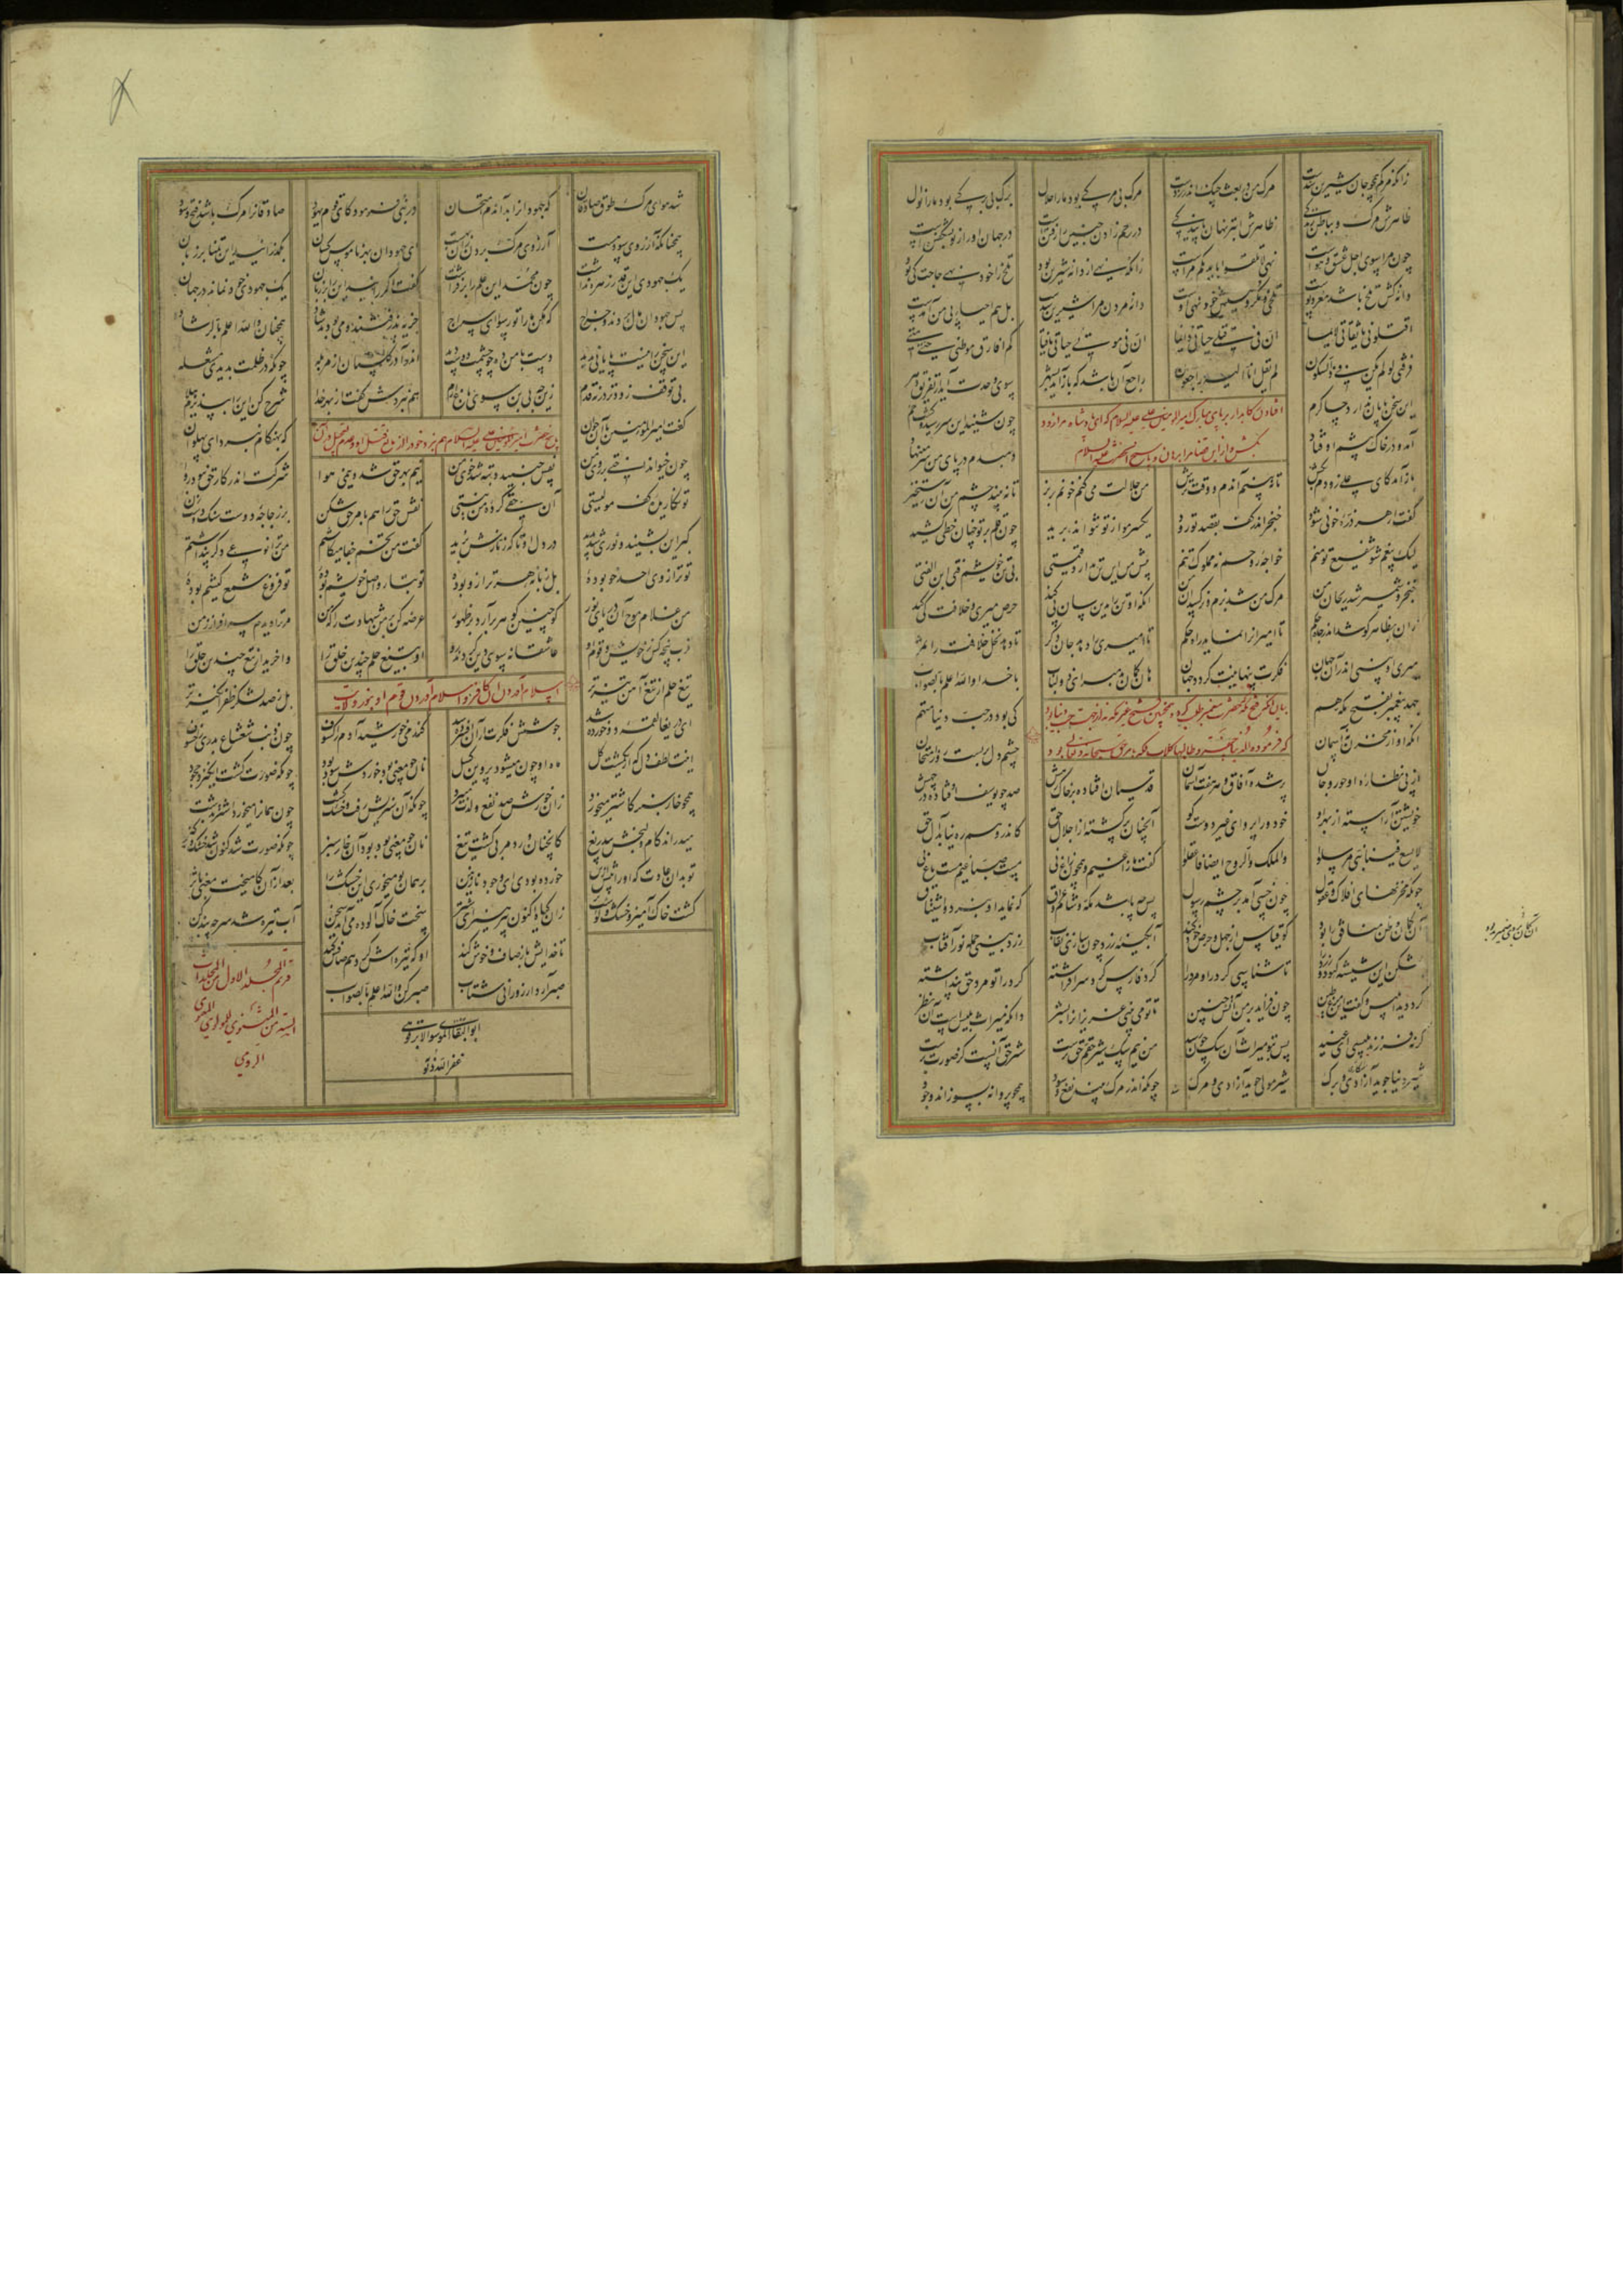 زانکه مرگم همچو جان شیرین شدست مرگ من در بعث چنگ اندر زدست مرگ بی مرگی بود ما را حلال برگ بی برگی بود ما را نوال
ظاهرش مرگ و بباطن زندگی ظاهرش ابتر نهان پایندگی در رحم زادن جنین را رفتنست در جهان او را ز نو بشکفتنست
چون مرا سوی اجل عشق و هواست نهی لا تلقوا بایدیکم مراست زانکه نهی از دانه شیرین بود تلخ را خود نهی حاجت کی بود
دانه کش تلخ باشد مغز و پوست تلخی و مکروهیش خود نهی اوست دانه مردن مرا شیرین شدست بل هم احیاء پی من آمدست
اقتلونی یا ثقاتی لائما ان فی قتلی حیاتی دائما ان فی موتی حیاتی یا فتی کم افارق موطنی حتی متی
فرقتی لو لم تکن فی ذا السکون لم یقل انا الیه راجعون راجع آن باشد که باز آید بشهر سوی وحدت آید از تفریق دهر
افتادن رکابدار بر پای مبارک امیرالمومنین علی علیه السلام که ای پادشاه مرا زود
بکش و از این قضا مرا برهان
این سخن پایان ندارد چاکرم چون شنید این سر ز سید گشت خم
آمد و در خاک پیشم اوفتاد دمبدم در پای من سر می نهاد
باز آمد کای علی زودم بکش تا نبینم آن دم و وقت ترش من حلالت میکنم خونم بریز تا نه بیند چشم من آن رستخیز
گفتم ار هر ذره خونی شود خنجر اندر کف بقصد تو رود یکسر مو از تو نتواند برید چون قلم بر تو چنان خطی کشید
لیک بیغم شو شفیع تو منم خواجه روحم نه مملوک تنم پیش من این تن ندارد قیمتی بی تن خویشم فتی ابن الفتی
خنجر و شمشیر شد ریحان من مرگ من شد بزم و نرگسدان من آنکه او تن را بدین سان پی کند حرص میری و خلافت کی کند
زان بظاهر کوشد اندر جاه و حکم تا امیران را نماید راه و حکم تا امیری را دهد جانی دگر تا دهد نخل خلافت را ثمر
میری او بینی اندر آن جهان فکرت پنهانیت گردد عیان هان گمان بد مبر ای ذولباب با خدا والله اعلم بالصواب
جهد پیغمبر بفتح مکه هم کی بود در حب دنیا متهم
آنکه او از مخزن هفت آسمان چشم دل بر بست روز امتحان
از پی نظاره او حور و جان پر شده آفاق هر هفت آسمان قدسیان افتاده بر خاک رهش صد چو یوسف اوفتاده در چهش
خویشتن آراسته از بهر او خود ورا پروای غیر دوست کو آنچنان پر گشته از اجلال حق کاندرو هم ره نیابد آل حق
لا یسع فینا نبی مرسل والملک والروح ایضا فاعقلوا گفت ما زاغیم همچون زاغ نی مست صباغیم مست باغ نی
چونکه مخزنهای افلاک و عقول چون خسی آمد بر چشم رسول پس چه باشد مکه و شام و عراق که نماید او نبرد و اشتیاق
آن گمان و ظن منافق را بود کو قیاس از جهل و حرص خود کند آبگینه زرد چون سازی نقاب زرد بینی جمله نور آفتاب
بشکن این شیشه کبود و زرد را تا شناسی گرد را و مرد را گرد فارس گرد سر افراشته گرد را تو مرد حق پنداشته
گرد دید ابلیس و گفت این فرع طین چون فزاید بر من آتش جبین تا تو می بینی عزیزان را بشر دانکه میراث بلیس است آن نظر
گر نه فرزند بلیسی ای عنید پس بتو میراث آن سگ چون رسید من نیم سگ شیر حقم حق پرست شیر حق آنست کز صورت برست
شیر دنیا جوید آزادی و برگ شیر مولی جوید آزادی و مرگ چونکه اندر مرگ بیند نفع و سود همچو پروانه بسوزاند وجود
شد هوای مرگ طوق صادقان که جهودان را بد آن دم امتحان در نبی فرمود کای قوم یهود صادقان را مرگ باشد فتح و سود
همچنانکه آرزوی سود هست آرزوی مرگ بردن زان بهست ای جهودان بهر ناموس کسان بگذرانید این تمنا بر زبان
یک جهودی این قدر زهره نداشت چون محمد این علم را بر فراشت گفت اگر رانید این را بر زبان یک جهودی خود نماند در جهان
پس جهودان مال بردند و خراج که مکن ما را تو رسوا ای سراج
این سخن را نیست پایانی پدید دست با من ده چو چشمت دوست دید اندر آ در گلستان از مزبله چونکه در ظلمت بدیدی مشعله
بی توقف زودتر درنه قدم زین چه بی بن سوی باغ ارم هم نبردش گفت از بهر خدا شرح کن این را
گفت امیرالمومنین با آن جوان که بهنگام نبرد ای پهلوان
چون خیو انداختی بر روی من نفس جنبید و تبه شد خوی من نیم بهر حق شد و نیمی هوا شرکت اندر کار حق نبود روا
تو نگاریده کف مولیستی آن حقی کرده من نیستی نقش حق را هم بامر حق شکن بر زجاجه دوست سنگ دوست زن
گبر این بشنید و نوری شد پدید در دل او تا که زنارش برید گفت من تخم جفا میکاشتم من ترا نوعی دگر پنداشتم
تو ترازوی احد خو بوده بل زبانه هر ترازو بوده تو تبار و اصل خویشم بوده تو فروغ شمع کیشم بوده
من غلام موج آن دریای نور کو چنین گوهر برآرد در ظهور عرضه کن بر من شهادت را که من مر ترا دیدم سرافراز زمن
قرب پنجه کس ز خویش و قوم او عاشقانه سوی دین کردند رو او بتیغ حلم چندین خلق را واخرید از تیغ چندین حلق را
تیغ حلم از تیغ آهن تیزتر بل ز صد لشکر ظفر انگیزتر
اسلام آوردن آن کافر و اسلام آوردن قوم او
ای دریغا لقمه دو خورده شد جوشش فکرت از آن افسرده شد گندمی خورشید آدم را کسوف چون ذنب شعشاع بدری را خسوف
اینت لطف دل که از یک مشت گل ماه او چون میشود پروین گسل نان چو معنی بود خوردش سود بود چونکه صورت گشت انگیزد جحود
همچو خار سبز کاشتر میخورد زان خورش صد نفع و لذت میبرد چونکه آن سبزیش رفت و خشک گشت چون همان را میخورد اشتر ز دشت
میدراند کام و لنجش ای دریغ کانچنان ورد مربی گشت تیغ نان چو معنی بود بود آن خار سبز چونکه صورت شد کنون خشکست و گبز
تو بدان عادت که او را پیش ازین خورده بودی ای وجود نازنین بر همان بو میخوری این خشک را بعد از آن کامیخت معنی با ثری
گشت خاک آمیز و خشک و گوشت بر زان گیاه اکنون بپرهیز ای شتر سخت خاک آلوده می آید سخن آب تیره شد سر چه بند کن
تا خدایش باز صاف و خوش کند او که تیره کرد هم صافش کند
صبر آرد آرزو را نی شتاب صبر کن والله اعلم بالصواب
قد تم المجلد الاول من المجلدات
الستة من المثنوی المولوی المعنوی
الرومی
ابوالبقاء الموسوی الابرقوهی
غفر الله ذنوبه